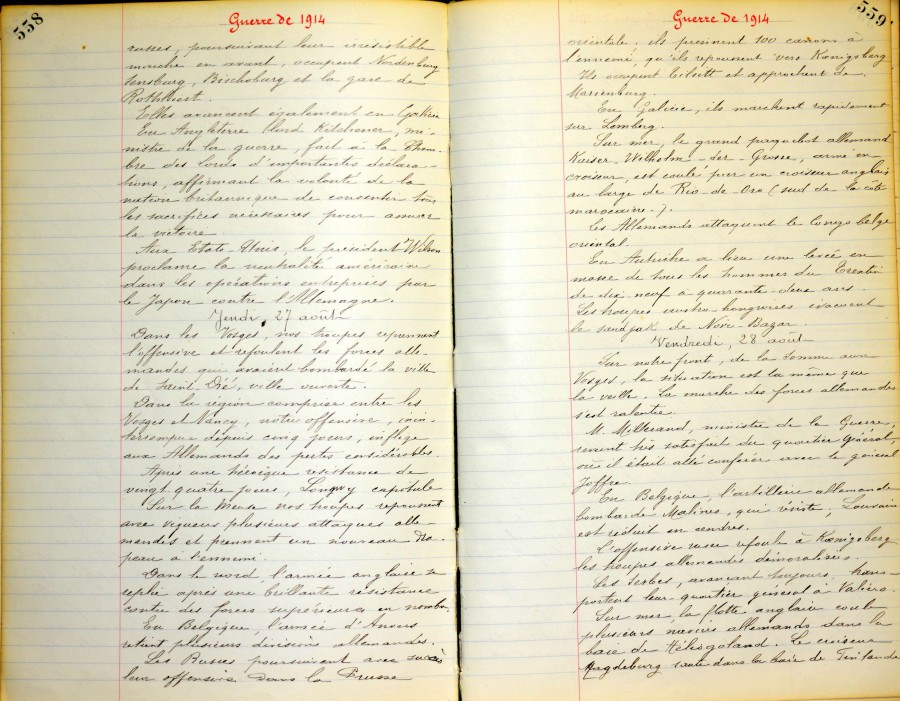 558
Guerre de 1914
russes, poursuivant leur irrésistible
marche en avant, occupent Nordenburg
Sensburg, Bischoburg et la gare de
Rothfliest.
Elles avancent également en Galicie
En Angleterre Lord Kitchener, mi-
nistre de la guerre, fait à la Cham-
bre des lords d'importantes déclara-
tions, affirmant la volonté de la
nation britannique de consentir tous
les sacrifices nécessaires pour assurer
la victoire.
Aux Etats-Unis, le président Wilson
proclame la neutralité américaine
dans les opérations entreprises par
le Japon contre l'Allemagne.
Jeudi, 27 août
Dans les Vosges, nos troupes reprennent
l'offensive et refoulent les forces alle-
mandes qui avaient bombardé la ville
de Saint Dié, ville ouverte.
Dans la région comprise entre les
Vosges et Nancy, notre offensive, inin-
terrompue depuis cinq jours, inflige
aux Allemands des pertes considérables.
Après une héroïque résistance de
vingt quatre jours, Longwy capitule
Sur la Meuse nos troupes repoussent
avec vigueur plusieurs attaques alle-
mandes et prennent un nouveau dra-
peau à l'ennemi.
Dans le nord, l'armée anglaise se
replie après une brillante résistance
contre des forces supérieures en nombre.
En Belgique, l'armée d'Anvers
retient plusieurs divisions allemandes.
Les Russes poursuivent avec succès
leur offensive. Dans la Prusse
559
Guerre de 1914
orientale, ils prennent 100 canons à
l'ennemi, qu'ils repoussent vers Kœnigsberg
Ils occupent Tilsitt et approchent de
Marienburg.
En Galicie, ils marchent rapidement
sur Lemberg.
Sur mer, le grand paquebot allemand
Kaiser-Wilhelm-der-Grosse, armé en
croiseur, est coulé par un croiseur anglais
au large de Rio-de-Oro (sud de la côte
marocaine.).
Les Allemands attaquent le Congo belge
oriental.
En Autriche a lieu une levée en
masse de tous les hommes du Trentin
de dix neuf à quarante-deux ans.
Les troupes austro-hongroises évacuent
le sandjak de Novi-Bazar.
Vendredi, 28 août
Sur notre front, de la Somme aux
Vosges, la situation est la même que
la veille. La marche des forces allemandes
s'est ralentie.
M. Millerand, ministre de la Guerre,
revient très satisfait du quartier Général,
où il était allé conférer avec le général
Joffre.
En Belgique, l'artillerie allemande
bombarde Malines, qui résiste, Louvain
est réduit en cendres.
L'offensive russe refoule à Kœnigsberg
les troupes allemandes démoralisées.
Les Serbes, avançant toujours, trans-
portent leur quartier général à Valievo.
Sur mer, la flotte anglaise coule
plusieurs navires allemands dans la
baie de Héligoland. Le croiseur
Magdeburg saute dans la baie de Finlande